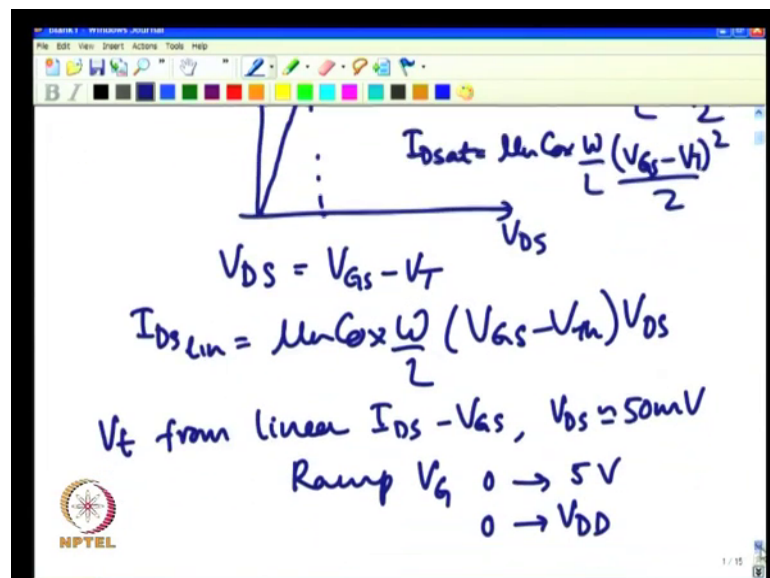 Blank1 - Windows Journal
File Edit View Insert Actions Tools Help
B I
L 2
IDsat = μn Cox W/L (VGS - VT)²/2
VDS
VDS = VGS - VT
IDS lin = μn Cox W/2 (VGS - VTh) VDS
Vt from linear IDS - VGS, VDS ≃ 50mV
Ramp VG 0 → 5V
0 → VDD
NPTEL
1 / 15